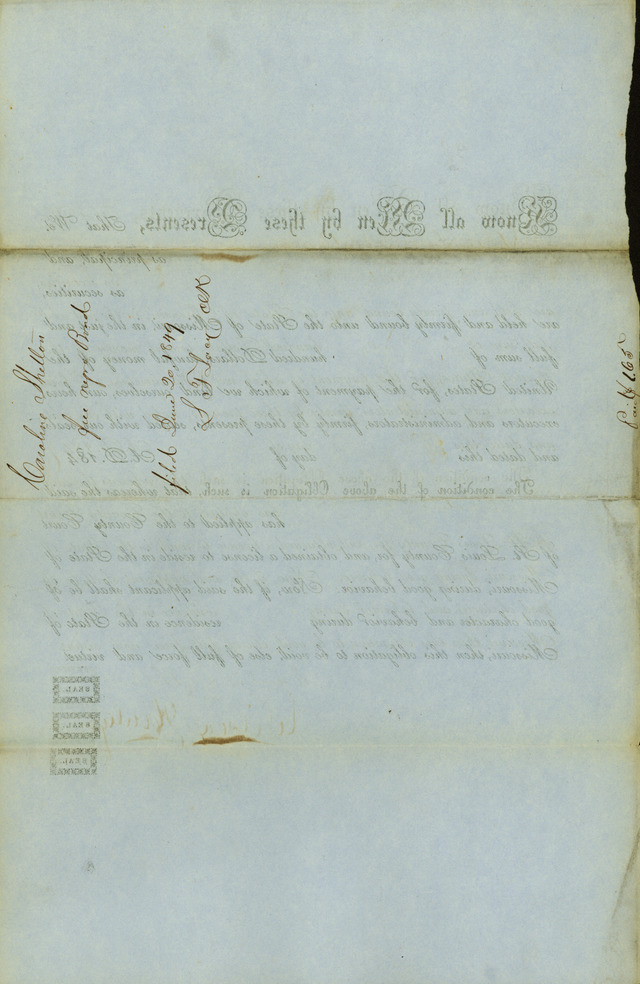 Caroline Shelton
free negro Bond
filed June 20, 1849
Clk
165
Know all Men by these Presents, That We,
as principal, and
as securities,
are held and firmly bound unto the State of Missouri, in the just and
full sum of hundred Dollars, lawful money of the
United States, for the payment of which we bind ourselves, our heirs,
executors and administrators, firmly by these presents, sealed with our seals
and dated this day of A.D. 184
The condition of the above Obligation is such, that whereas the said
has applied to the County Court
of St. Louis County for, and obtained a license to reside in the State of
Missouri, during good behavior. Now, if the said applicant shall be of
good character and behavior during residence in the State of
Missouri, then this obligation to be void, else of full force and virtue.
SEAL.
SEAL.
SEAL.